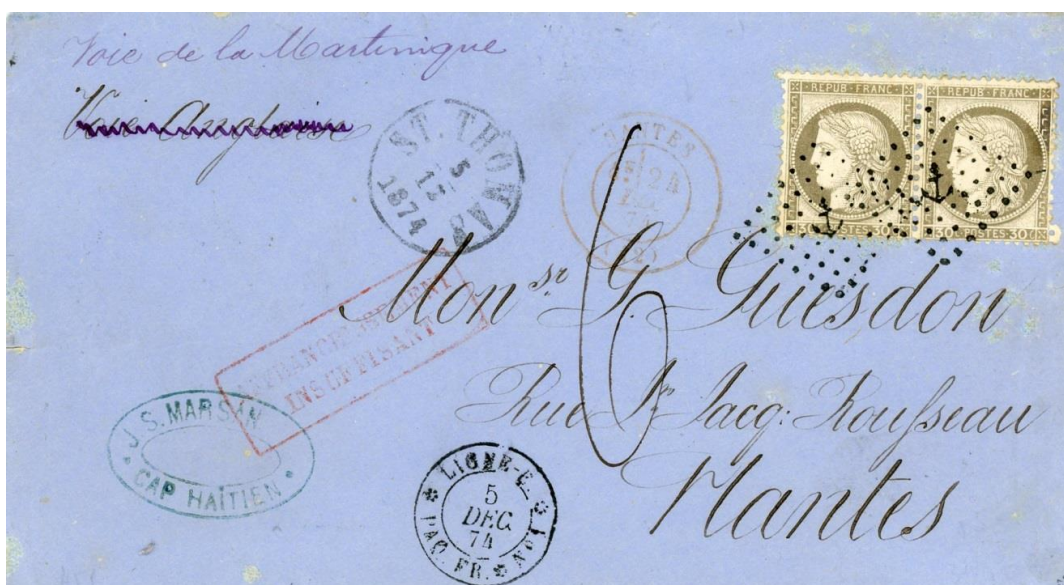 Voie de la Martinique
Voie Anglaise
ST. THOMAS
5
12
1874
NANTES
REPUB · FRANC ·
30 C · POSTES · 30 C
REPUB · FRANC ·
30 C · POSTES · 30 C
AFFRANCHISSEMENT
INSUFFISANT
6
Monsr G. Guesdon
Rue Jn Jacq: Rousseau
Nantes
J. S. MARSAN
CAP HAÏTIEN
LIGNE
5
DEC.
74
PAQ. FR. No 1